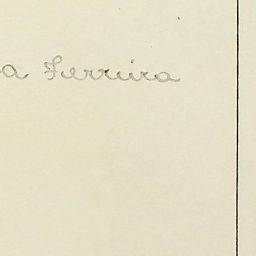 a Ferreira